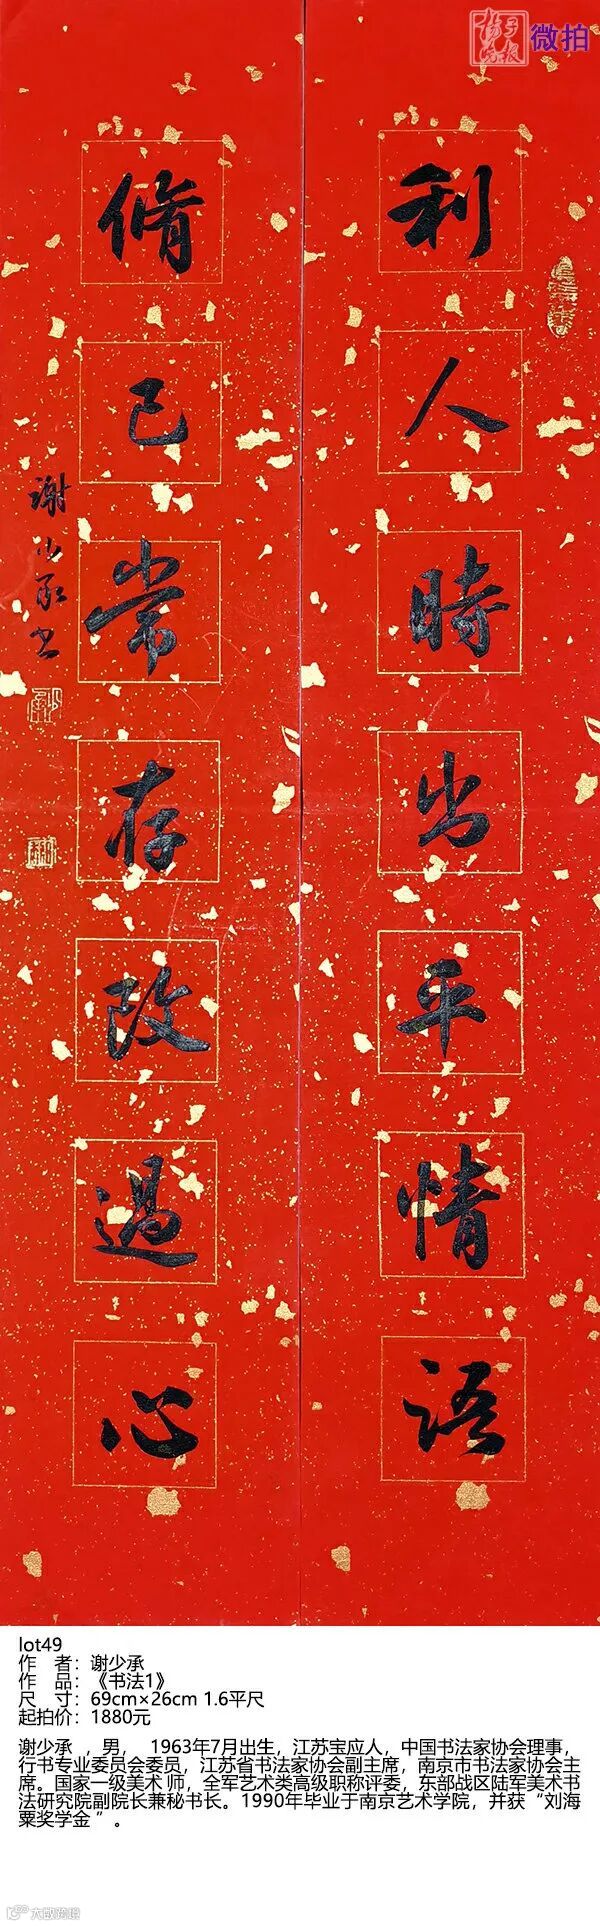 扬子晚报
微拍
利人時出平情語
脩己常存改過心
谢少承书
lot49
作 者：谢少承
作 品：《书法1》
尺 寸：69cm×26cm 1.6平尺
起拍价：1880元
谢少承 ，男， 1963年7月出生，江苏宝应人，中国书法家协会理事，
行书专业委员会委员，江苏省书法家协会副主席，南京市书法家协会主
席。国家一级美术 师，全军艺术类高级职称评委，东部战区陆军美术书
法研究院副院长兼秘书长。1990年毕业于南京艺术学院，并获“刘海
粟奖学金 ”。
大数跨境